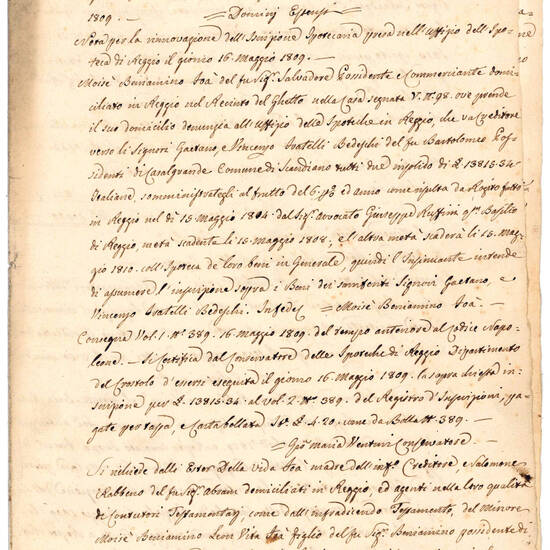 1809. — Dominj Estensi
Nota per la rinnovazione dell'Inscrizione Ipotecaria presa nell'Uffizio dell'Ipo-
teca di Reggio il giorno 16. Maggio 1809.
Moisè Beniamino Foà del fu Sigr. Salvadore Possidente e Commerciante domi-
ciliato in Reggio nel Recinto del Ghetto nella Casa segnata N. 98. ove prende
il suo domicilio denunzia all'Uffizio delle Ipoteche in Reggio, che va Creditore
verso li Signori Gaetano, e Vincenzo Fratelli Bedeschi del fu Bartolomeo Pos-
sidenti di Casalgrande Comune di Scandiano tutti due in solido di £ 13815:34
Italiane, somministrategli al frutto del 6. p% ed anno come risulta da Rogito fatto
in Reggio nel dì 15 Maggio 1804. dal Sigr. Avvocato Giuseppe Ruffini qm. Basilio
di Reggio, metà scadente li 15. Maggio 1808, e l'altra metà scaderà li 15. Mag-
gio 1810. coll'Ipoteca de' loro beni in Generale, quindi l'Insinuante intende
di assumere l'inscrizione sopra i Beni dei Signori Gaetano, e
Vincenzo Fratelli Bedeschi. In fede — Moisè Beniamino Foà —
Consegna Vol. 1. N. 389. 16. Maggio 1809. del tempo anteriore al Codice Napo-
leone. — Si Certifica dal Conservatore delle Ipoteche di Reggio Dipartimento
del Crostolo d'essersi eseguita il giorno 16. Maggio 1809. la sopra chiesta in-
scrizione per £. 13815:34 al Vol. 2. N. 389. del Registro d'Inscrizioni, pa-
gate per tassa, e Carta bollata £. 4.20. come da Bolla N. 389.
— Gio. Maria Venturi Conservatore. —
Si richiede dalli Ester Della Vida Foà madre dell' Creditore, e Salomone
Rabbeno del fu Sigr. Abram domiciliati in Reggio, ed agenti nella loro qualità
di Contutori Testamentarj come dall'infradicendo Testamento, del Minore
Moisè Beniamino Leon Vita Foà figlio del fu Sigr. Beniamino possidente di